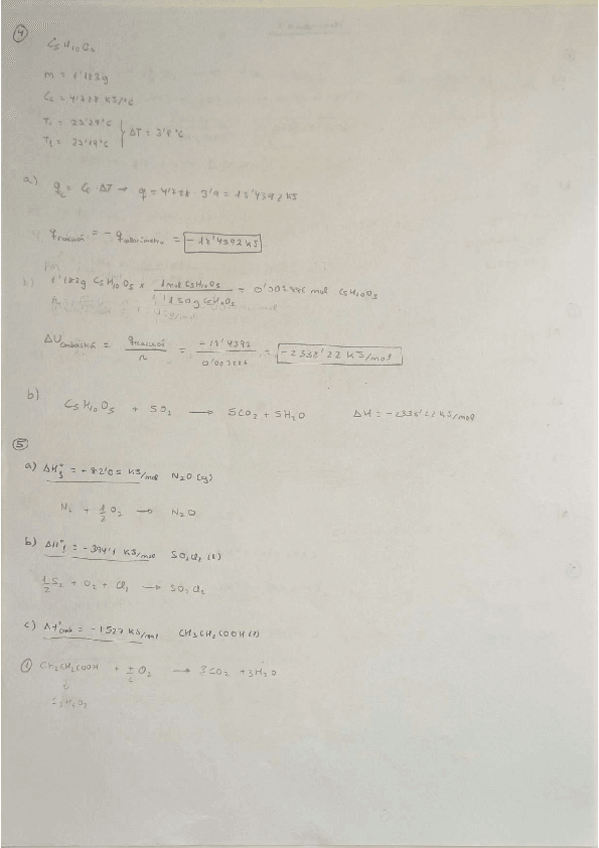 4
C5H10O5
m = 1'183g
Cc = 4'728 KJ/°C
ΔT = 3'9 °C
a) qc = Cc · ΔT → q = 4'728 · 3'9 = 18'4392 KJ
qreacció = - qcalorímetre = -18'4392 KJ
1'183g C5H10O5 × 1mol C5H10O5 / 150g C5H10O5 = mol C5H10O5
ΔUcombustió = qreacció / n = -18'4392 / = -2338'22 KJ/mol
b)
C5H10O5 + 5O2 → 5CO2 + 5H2O ΔH = -2338'22 KJ/mol
5
a) ΔH°f = -82'05 KJ/mol N2O (g)
N2 + 1/2 O2 → N2O
b) ΔH°f = -394'1 KJ/mol SO2Cl2 (l)
1/2 S2 + O2 + Cl2 → SO2Cl2
c) ΔH°comb = -1527 KJ/mol CH3CH2COOH (l)
1 CH3CH2COOH + 7/2 O2 → 3CO2 + 3H2O
C3H6O2